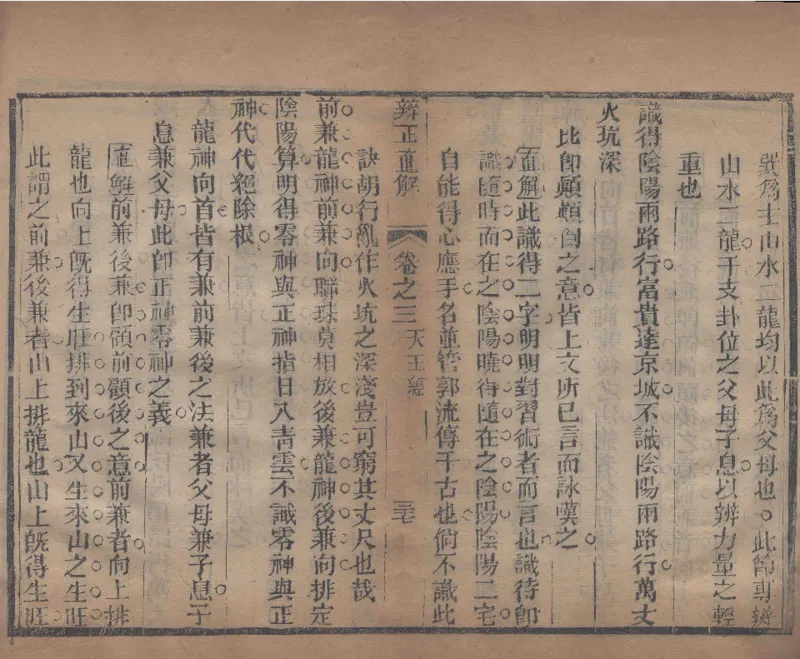 巽爲主山水二龍均以此爲父母也此節專辨
山水二龍干支卦位之父母子息以辨力量之輕
重也
識得陰陽兩路行富貴達京城不識陰陽兩路行萬丈
火坑深
此卽顛顛倒之意皆上文所已言而詠嘆之
直解此識得二字明明對習術者而言也識得卽
識隨時而在之陰陽曉得隨在之陰陽陰陽二宅
自能得心應手名並管郭流傳千古也倘不識此
辨正直解 卷之三 天玉經
訣胡行亂作火坑之深淺豈可窮其丈尺也哉
前兼龍神前兼向聯珠莫相放後兼龍神後兼向排定
陰陽算明得零神與正神指日入青雲不識零神與正
神代代絕除根
龍神向首皆有兼前兼後之法兼者父母兼子息子
息兼父母此卽正神零神之義
直解前兼後兼卽顧前顧後之意前兼者向上排
龍也向上旣得生旺排到來山又生來山之生旺
此謂之前兼後兼者山上排龍也山上旣得生旺